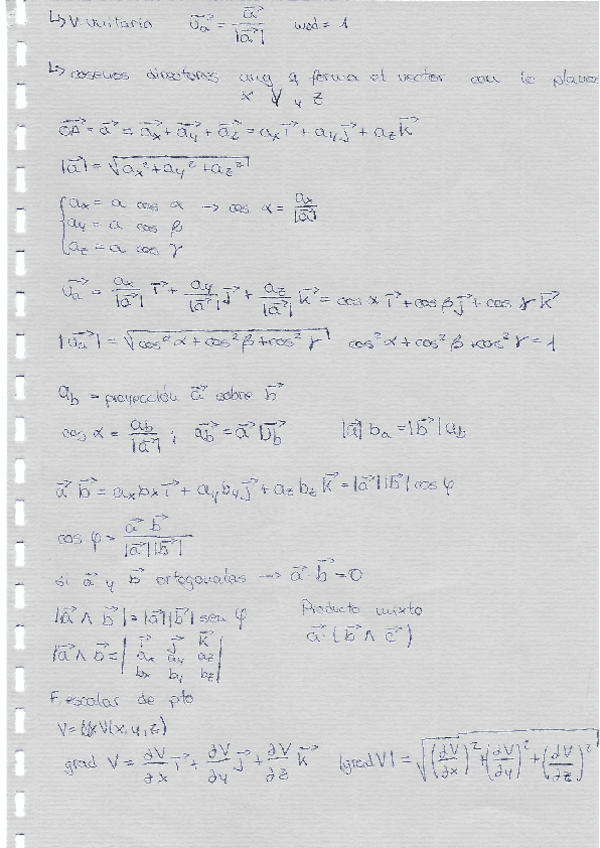 ↳ V unitario $\vec{u_a} = \frac{\vec{a}}{|\vec{a}|}$ mod = 1
↳ cosenos directores ang q forma el vector con lo planos
x y z
$\vec{OA} = \vec{a} = \vec{a_x} + \vec{a_y} + \vec{a_z} = a_x\vec{i} + a_y\vec{j} + a_z\vec{k}$
$|\vec{a}| = \sqrt{a_x^2 + a_y^2 + a_z^2}$
$a_x = a \cos \alpha \rightarrow \cos \alpha = \frac{a_x}{|\vec{a}|}$
$a_y = a \cos \beta$
$a_z = a \cos \gamma$
$\vec{u_a} = \frac{a_x}{|\vec{a}|}\vec{i} + \frac{a_y}{|\vec{a}|}\vec{j} + \frac{a_z}{|\vec{a}|}\vec{k} = \cos \alpha \vec{i} + \cos \beta \vec{j} + \cos \gamma \vec{k}$
$|\vec{u_a}| = \sqrt{\cos^2 \alpha + \cos^2 \beta + \cos^2 \gamma}$ $\cos^2 \alpha + \cos^2 \beta + \cos^2 \gamma = 1$
$a_b$ = proyección $\vec{a}$ sobre $\vec{b}$
$\cos \alpha = \frac{a_b}{|\vec{a}|}$ ; $\vec{a_b} = \vec{a} |\vec{u_b}$ $|\vec{a}| b_a = |\vec{b}| a_b$
$\vec{a} \vec{b} = a_x b_x \vec{i} + a_y b_y \vec{j} + a_z b_z \vec{k} = |\vec{a}||\vec{b}| \cos \varphi$
$\cos \varphi = \frac{\vec{a} \vec{b}}{|\vec{a}||\vec{b}|}$
si $\vec{a}$ y $\vec{b}$ ortogonales → $\vec{a} \cdot \vec{b} = 0$
$|\vec{a} \wedge \vec{b}| = |\vec{a}||\vec{b}|$ sen $\varphi$ Producto mixto
$|\vec{a} \wedge \vec{b} = \begin{vmatrix} \vec{i} & \vec{j} & \vec{k} \\ a_x & a_y & a_z \\ b_x & b_y & b_z \end{vmatrix}$ $\vec{a} \cdot (\vec{b} \wedge \vec{c})$
F. escalar de pto
V = V(x, y, z)
grad $V = \frac{\partial V}{\partial x}\vec{i} + \frac{\partial V}{\partial y}\vec{j} + \frac{\partial V}{\partial z}\vec{k}$ $|grad V| = \sqrt{\left(\frac{\partial V}{\partial x}\right)^2 + \left(\frac{\partial V}{\partial y}\right)^2 + \left(\frac{\partial V}{\partial z}\right)^2}$